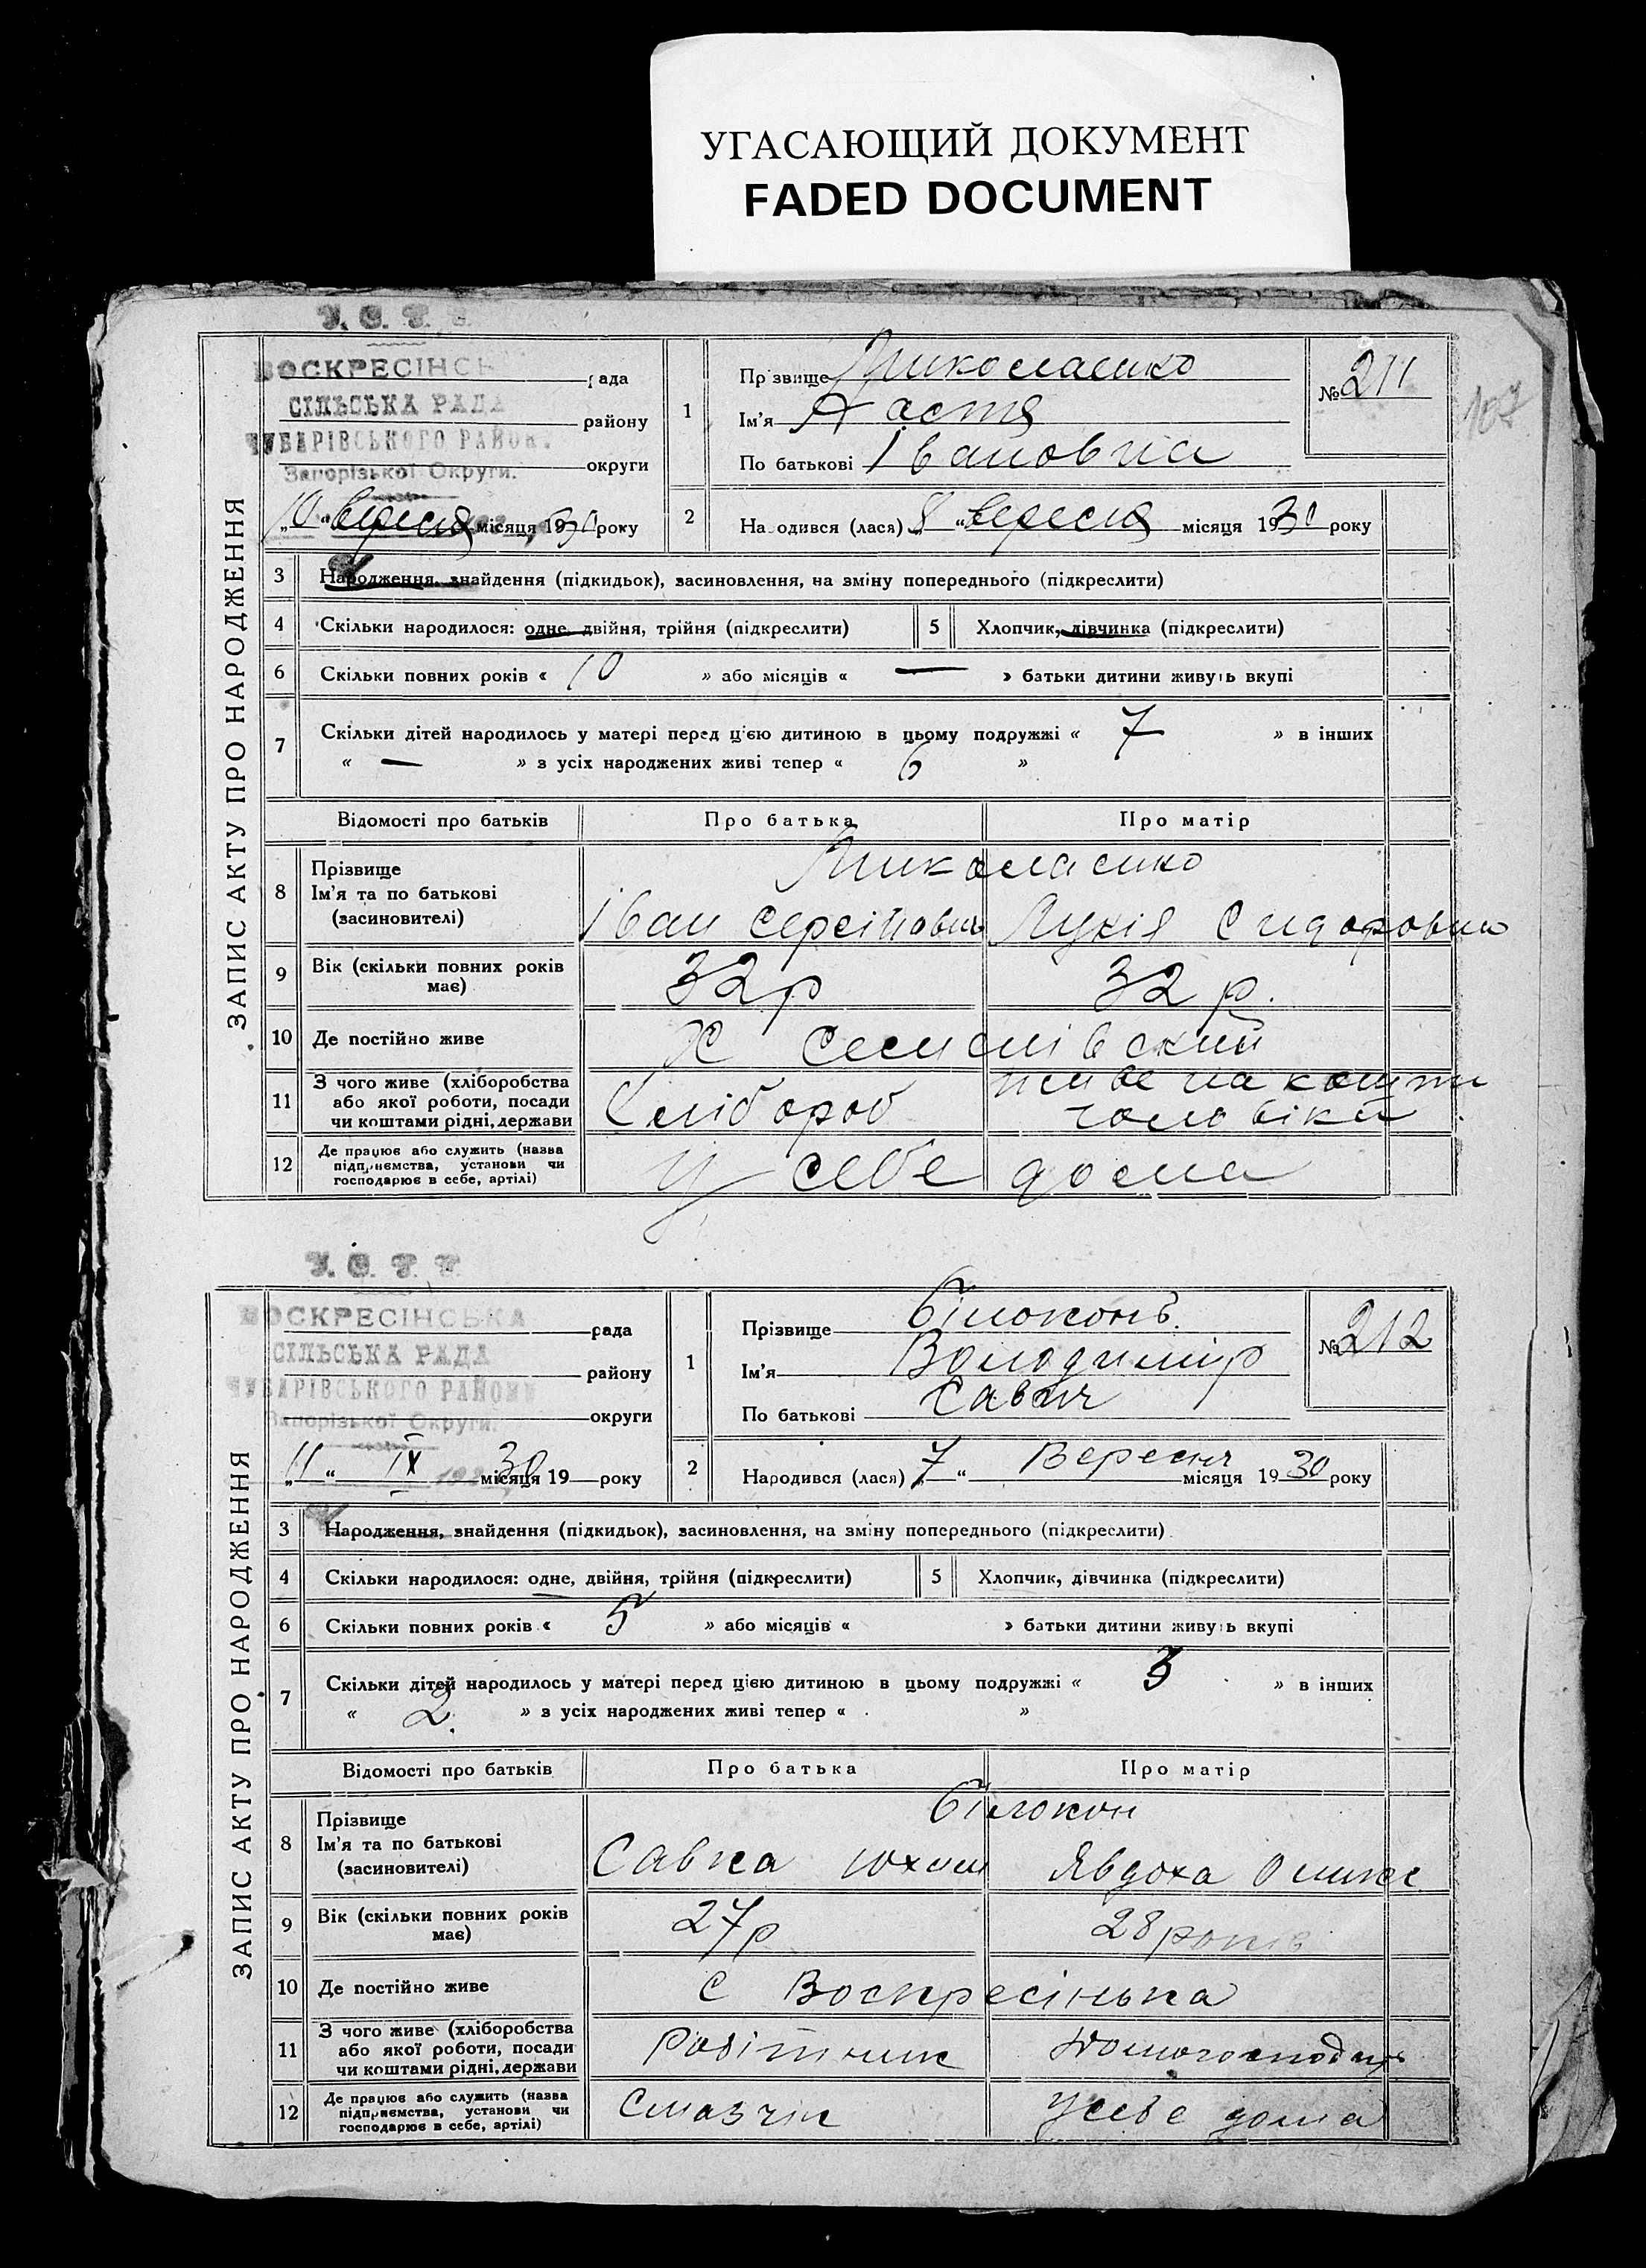 УГАСАЮЩИЙ ДОКУМЕНТ
FADED DOCUMENT
У. С. Р. Р.
ВОСКРЕСІНСЬ
рада
СІЛЬСЬКА РАДА
району
ЧУБАРІВСЬКОГО РАЙОН.
Запорізької Округи.
округи
„10“ вересня місяця 1930 року
1
Прізвище Миколаєнко
Ім'я Настя
По батькові Івановна
№ 211
107
2
Народився (лася) 8 “ вересня місяця 1930 року
ЗАПИС АКТУ ПРО НАРОДЖЕННЯ
3 Народження, знайдення (підкидьок), засиновлення, на зміну попереднього (підкреслити)
4 Скільки народилося: одне, двійня, трійня (підкреслити) 5 Хлопчик, дівчинка (підкреслити)
6 Скільки повних років « 10 » або місяців « — » батьки дитини живуть вкупі
7 Скільки дітей народилось у матері перед цією дитиною в цьому подружжі « 7 » в інших
« — » з усіх народжених живі тепер « 6 »
Відомості про батьків Про батька Про матір
8 Прізвище
Ім'я та по батькові
(засновителі)
Миколаенко
Іван Лукія Сидоровна
9 Вік (скільки повних років має) 32р 32 р.
10 Де постійно живе Х
11 З чого живе (хліборобства
або якої роботи, посади
чи коштами рідні, держави
Хлібороб живе на кошти
чоловіка
12 Де працює або служить (назва
підприємства, установи чи
господарює в себе, артілі)
У себе дома
У. С. Р. Р.
ВОСКРЕСІНСЬКА
рада
СІЛЬСЬКА РАДА
району
ЧУБАРІВСЬКОГО РАЙОНУ
Запорізької Округи.
округи
„11“ IX місяця 1930 року
1
Прізвище Білоконь.
Ім'я Володимір
По батькові Савич
№ 212
2
Народився (лася) 7 “ Вересня місяця 1930 року
ЗАПИС АКТУ ПРО НАРОДЖЕННЯ
3 Народження, знайдення (підкидьок), засиновлення, на зміну попереднього (підкреслити)
4 Скільки народилося: одне, двійня, трійня (підкреслити) 5 Хлопчик, дівчинка (підкреслити)
6 Скільки повних років « 5 » або місяців « » батьки дитини живуть вкупі
7 Скільки дітей народилось у матері перед цією дитиною в цьому подружжі « 3 » в інших
« 2. » з усіх народжених живі тепер « »
Відомості про батьків Про батька Про матір
8 Прізвище
Ім'я та по батькові
(засновителі)
Білокон
Савка Юхим Явдоха
9 Вік (скільки повних років має) 27р 28 років
10 Де постійно живе С Воскресінька
11 З чого живе (хліборобства
або якої роботи, посади
чи коштами рідні, держави
Робітник
12 Де працює або служить (назва
підприємства, установи чи
господарює в себе, артілі)
Смазчик Усебе дома